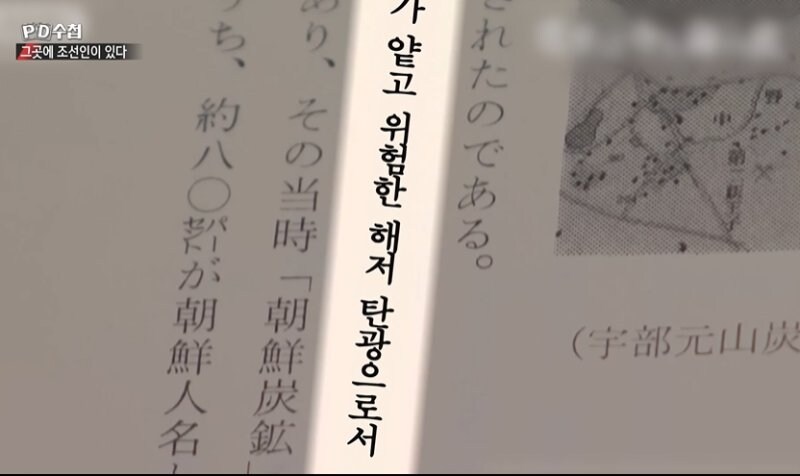 PD수첩
그곳에 조선인이 있다
されたのである。
가 얕고 위험한 해저 탄광으로서
あり、その当時「朝鮮炭鉱
うち、約八〇パーセントが朝鮮人名
(宇部元山炭